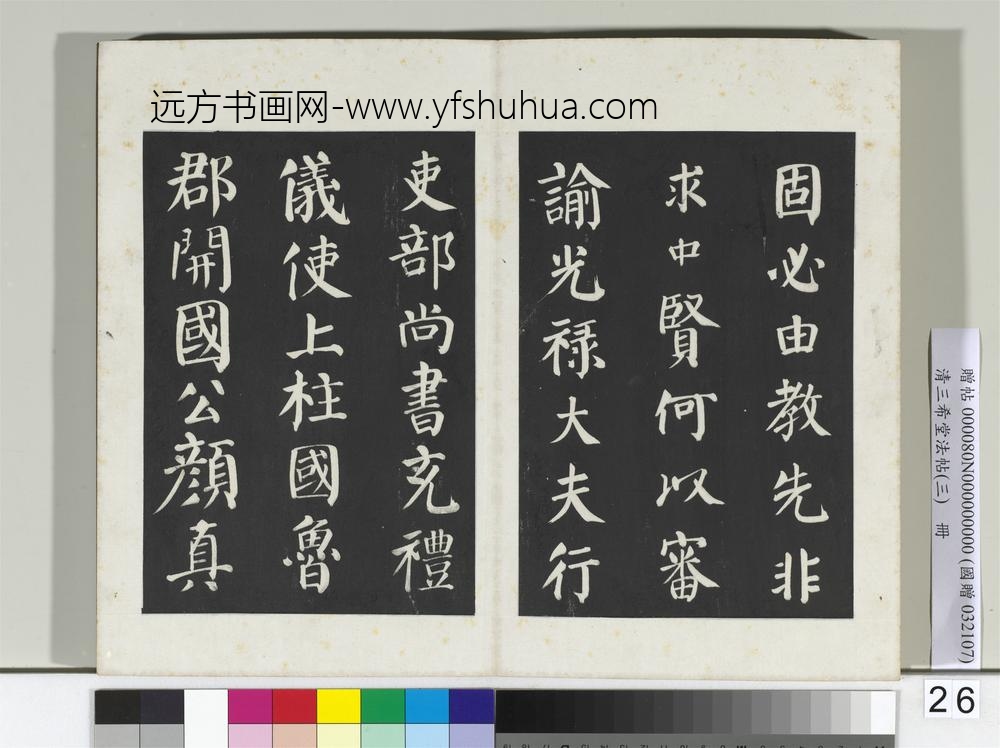 远方书画网-www.yfshuhua.com
固必由教先非
求中賢何以審
諭光禄大夫行
吏部尚書充禮
儀使上柱國魯
郡開國公顏真
贈帖 000080N000000000 (國贈 032107)
清三希堂法帖(三) 冊
26